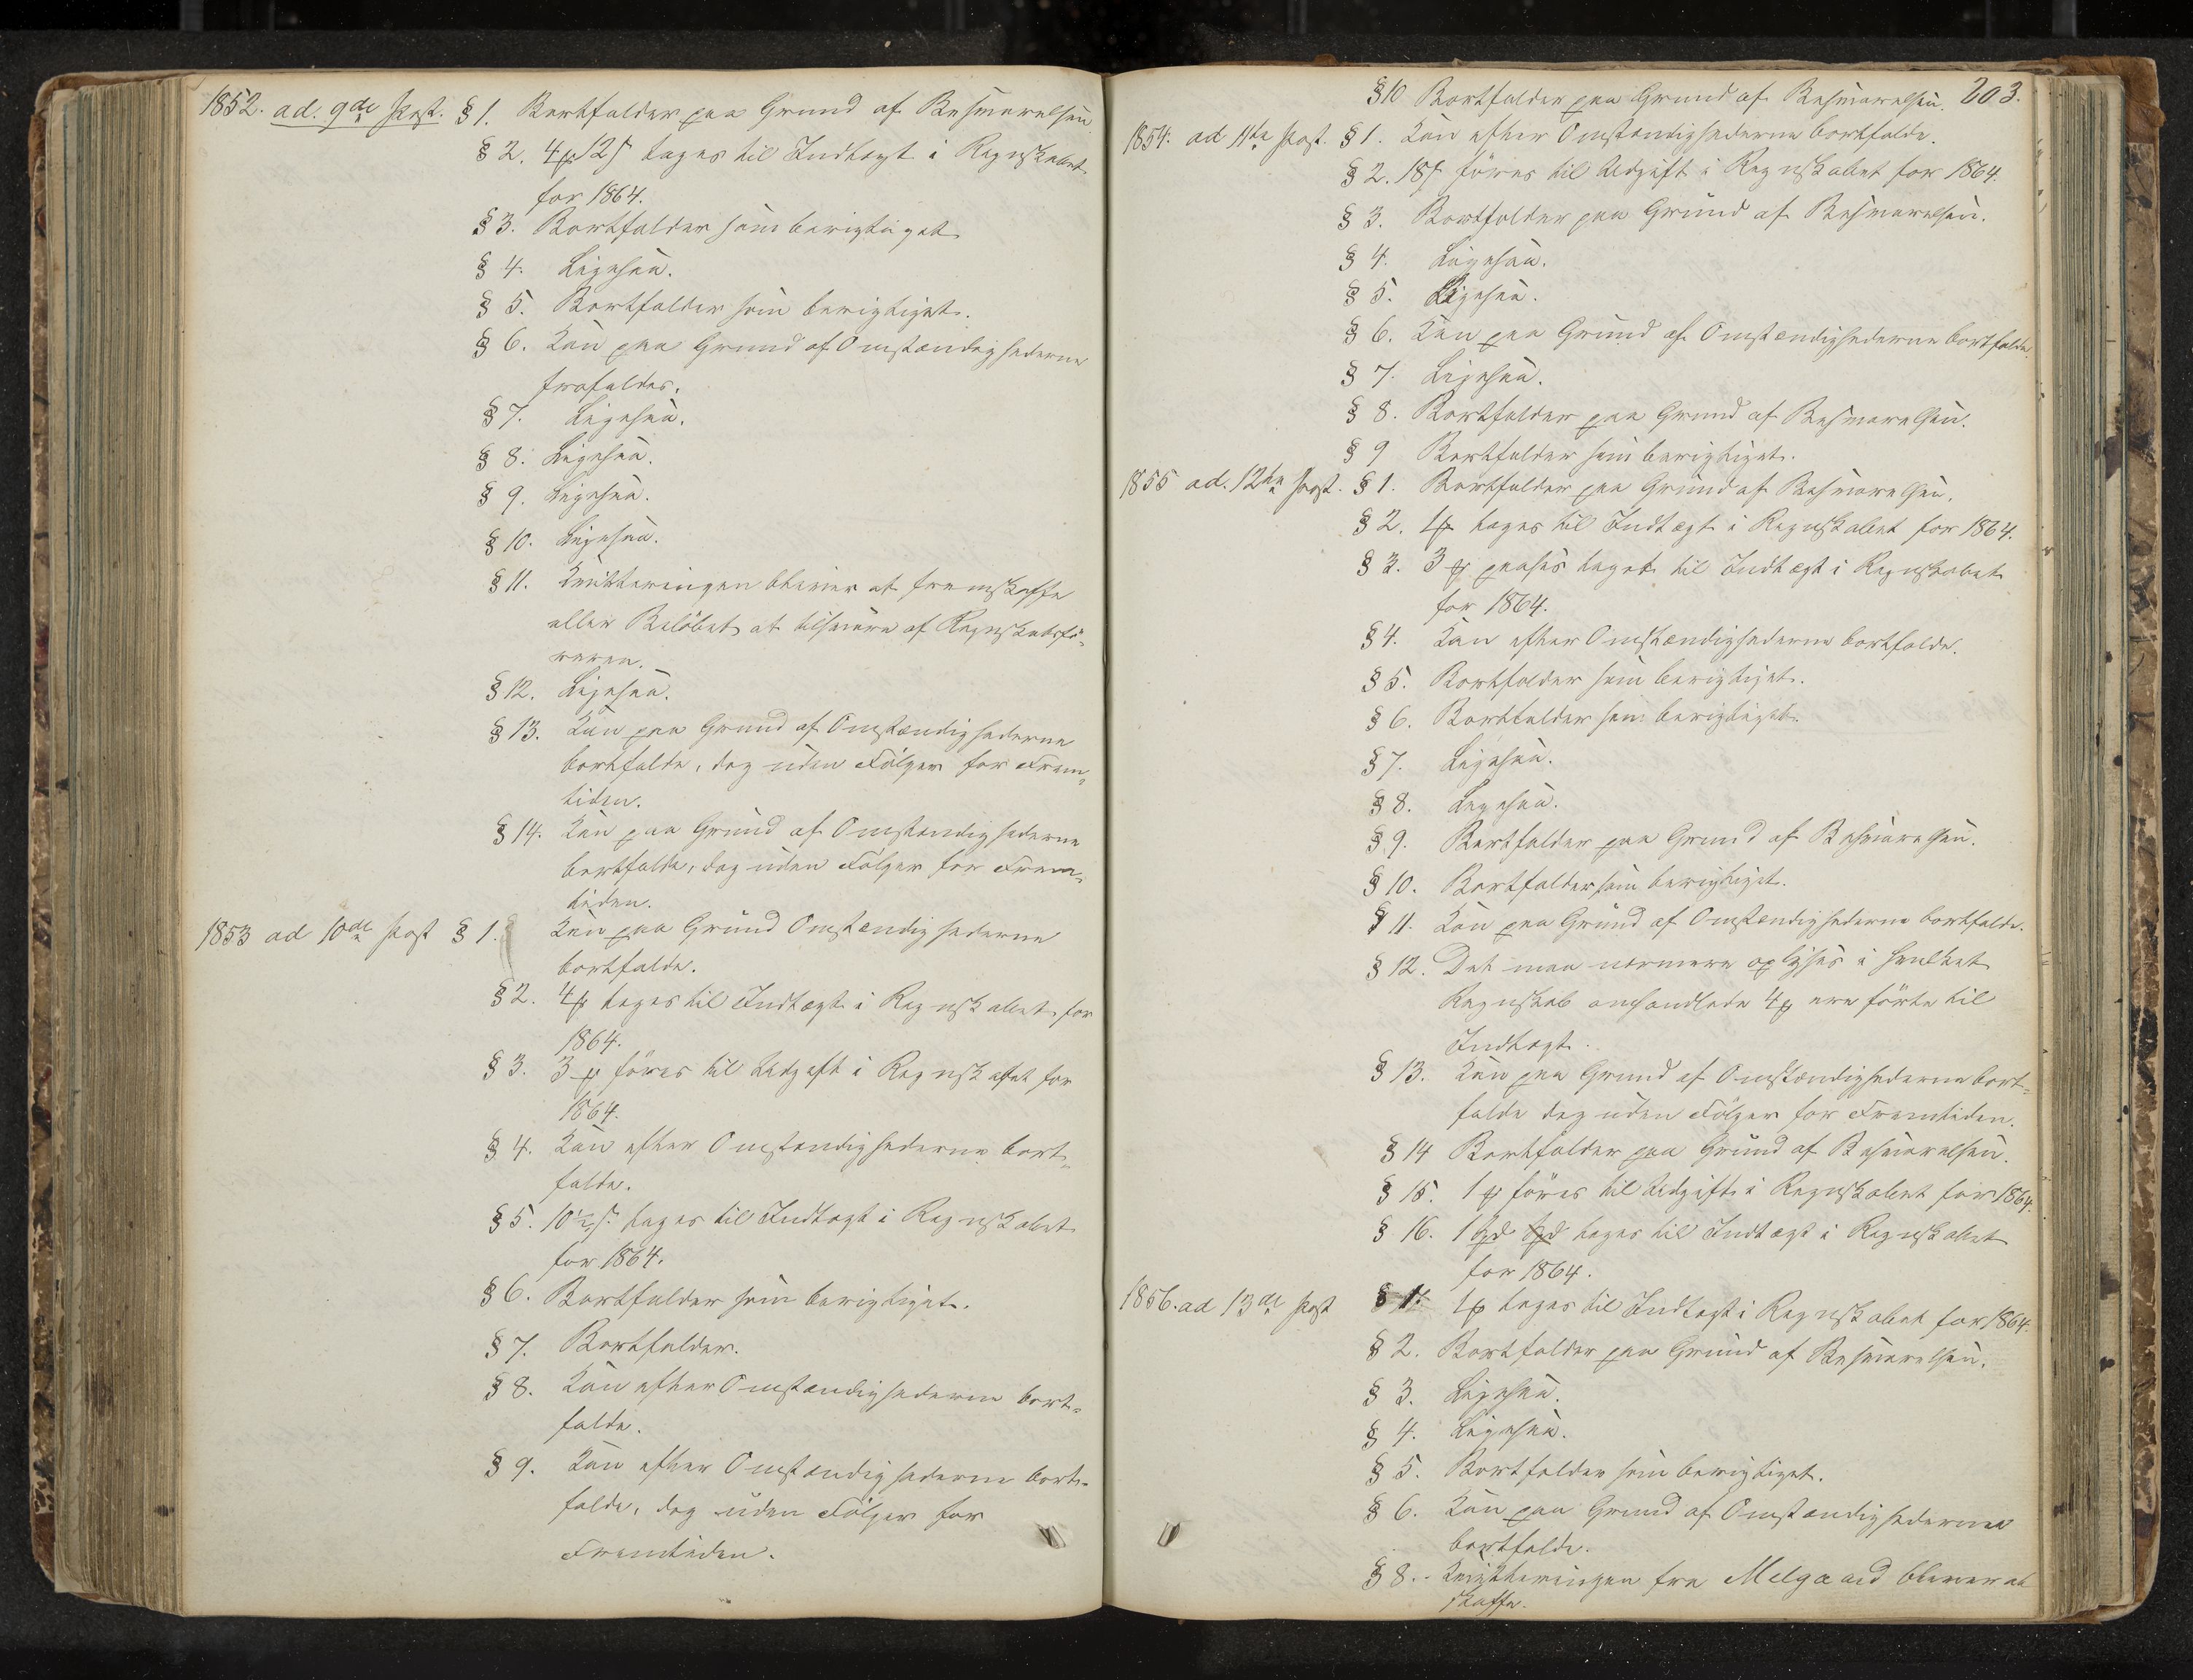 1852. ad. 9de Post. § 1. Bortfalder paa Grund af Besvarelsen.
§ 2. 4 12 s tages til Indtægt i Regnskabet
for 1864.
§ 3. Bortfalder som berigtiget
§ 4. Ligesaa.
§ 5. Bortfalder som berigtiget.
§ 6. Kan paa Grund af Omstændighederne
frafaldes.
§ 7. Ligesaa.
§ 8. Ligesaa.
§ 9. Ligesaa.
§ 10. Ligesaa.
§ 11. Kvitteringen bliver at fremskaffe
eller Beløbet at tilsvare af Regnskabsfø-
reren.
§ 12. Ligesaa.
§ 13. Kan paa Grund af Omstændighederne
bortfalde, dog uden Følger for Frem-
tiden.
§ 14. Kan paa Grund af Omstændighederne
bortfalde, dog uden Følger for Frem-
tiden.
1853 ad 10de Post § 1. Kan paa Grund Omstændighederne
bortfalde.
§ 2. 4 tages til Indtægt i Regnskabet for
1864.
§ 3. 3 føres til Udgift i Regnskabet for
1864.
§ 4. Kan efter Omstændighederne bort-
falde.
§ 5. 10½ s. tages til Indtægt i Regnskabet
for 1864.
§ 6. Bortfalder som berigtiget.
§ 7. Bortfalder.
§ 8. Kan efter Omstændighederne bort-
falde.
§ 9. Kan efter Omstændighederne bort-
falde, dog uden Følger for
Fremtiden.
203.
§ 10 Bortfalder paa Grund af Besvarelsen.
1854. ad 11te Post. § 1. Kan efter Omstændighederne bortfalde.
§ 2. 18 s føres til Udgift i Regnskabet for 1864.
§ 3. Bortfalder paa Grund af Besvarelsen.
§ 4. Ligesaa.
§ 5. Ligesaa.
§ 6. Kan paa Grund af Omstændighederne bortfalde.
§ 7. Ligesaa.
§ 8. Bortfalder paa Grund af Besvarelsen.
§ 9 Bortfalder som berigtiget.
1855 ad. 12te Post. § 1. Bortfalder paa Grund af Besvarelsen.
§ 2. 1 tages til Indtægt i Regnskabet for 1864.
§ 3. 3 paases taget til Indtægt i Regnskabet
for 1864.
§ 4. Kan efter Omstændighederne bortfalde.
§ 5. Bortfalder som berigtiget.
§ 6. Bortfalder som berigtiget.
§ 7. Ligesaa.
§ 8. Ligesaa.
§ 9. Bortfalder paa Grund af Besvarelsen.
§ 10. Bortfalder som berigtiget.
§ 11. Kan paa Grund af Omstændighederne bortfalde.
§ 12. Det maa nærmere oplyses i hvilket
Regnskab omhandlede 4 ere førte til
Indtægt.
§ 13. Kan paa Grund af Omstændighederne bort-
falde dog uden Følger for Fremtiden.
§ 14 Bortfalder paa Grund af Besvarelsen.
§ 15. 1 føres til Udgift i Regnskabet for 1864.
§ 16. 1 Spd Spd tages til Indtægt i Regnskabet
for 1864.
1856. ad 13de Post § 1. 1 tages til Indtægt i Regnskabet for 1864.
§ 2. Bortfalder paa Grund af Besvarelsen.
§ 3. Ligesaa.
§ 4. Ligesaa.
§ 5. Bortfalder som berigtiget.
§ 6. Kan paa Grund af Omstændighederne
bortfalde.
§ 8. Kvitteringen fra Melgaard bliver at
skaffe.